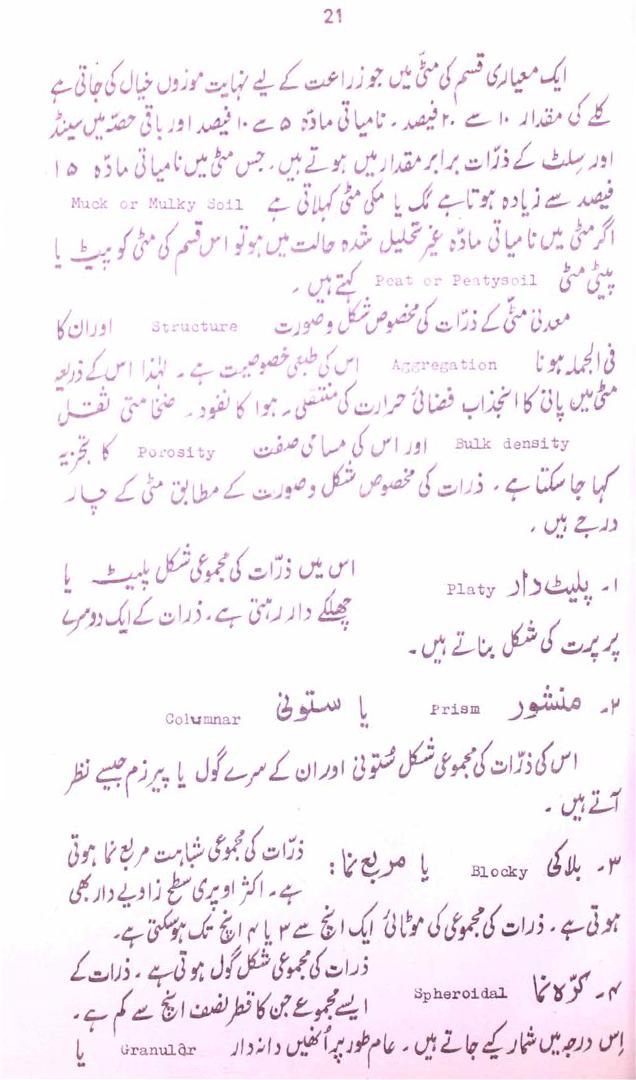 21
ایک معیاری قسم کی مٹی میں جو زراعت کے لیے نہایت موزوں خیال کی جاتی ہے
کلے کی مقدار ۱۰ سے ۲۰ فیصد ۔ نامیاتی مادّہ ۵ سے ۱۰ فیصد اور باقی حصّہ میں سینڈ
اور سِلٹ کے ذرّات برابر مقدار میں ہوتے ہیں۔ جس مٹی میں نامیاتی مادّہ ۱۵
فیصد سے زیادہ ہوتا ہے مُک یا مکی مٹی کہلاتی ہے Muck or Mulky Soil
اگر مٹی میں نامیاتی مادّہ غیر تحلیل شدہ حالت میں ہو تو اس قسم کی مٹی کو پیٹ یا
پیٹی مٹی Peat or Peatysoil کہتے ہیں ۔
معدنی مٹّی کے ذرّات کی مخصوص شکل و صورت Structure اور ان کا
فی الجملہ ہونا Aggregation اس کی طبعی خصوصیت ہے ۔ لہٰذا اس کے ذریعہ
مٹی میں پانی کا انجذاب فضائی حرارت کی منتقلی ۔ ہوا کا نفود ۔ ضخامتی ثقل
Bulk density اور اس کی مسامی صفت Porosity کا تجزیہ
کہا جا سکتا ہے ۔ ذرات کی مخصوص شکل و صورت کے مطابق مٹی کے چار
درجے ہیں ۔
۱۔ پلیٹ دار Platy اس میں ذرّات کی مجموعی شکل پلیٹ یا
چھلکے دار رہتی ہے۔ ذرات کے ایک دوسرے
پر پرت کی شکل بناتے ہیں ۔
۲۔ منشور Prism یا ستونی Columnar
اس کی ذرّات کی مجموعی شکل سُتونی اور ان کے سرے گول یا پیرزم جیسے نظر
آتے ہیں ۔
۳۔ بلاکی Blocky یا مربع نما : ذرّات کی مجموعی شباہت مربع نما ہوتی
ہے ۔ اکثر اوپری سطح زاویے دار بھی
ہوتی ہے ۔ ذرات کی مجموعی کی موٹائی ایک انچ سے ۳ یا ۴ انچ تک ہو سکتی ہے۔
۴۔ کرّہ نما Spheroidal ذرات کی مجموعی شکل گول ہوتی ہے ۔ ذرات کے
ایسے مجموعے جن کا قطر نصف انچ سے کم ہے ۔
اِس درجہ میں شمار کیے جاتے ہیں ۔ عام طور پر اُنھیں دانہ دار Granular یا